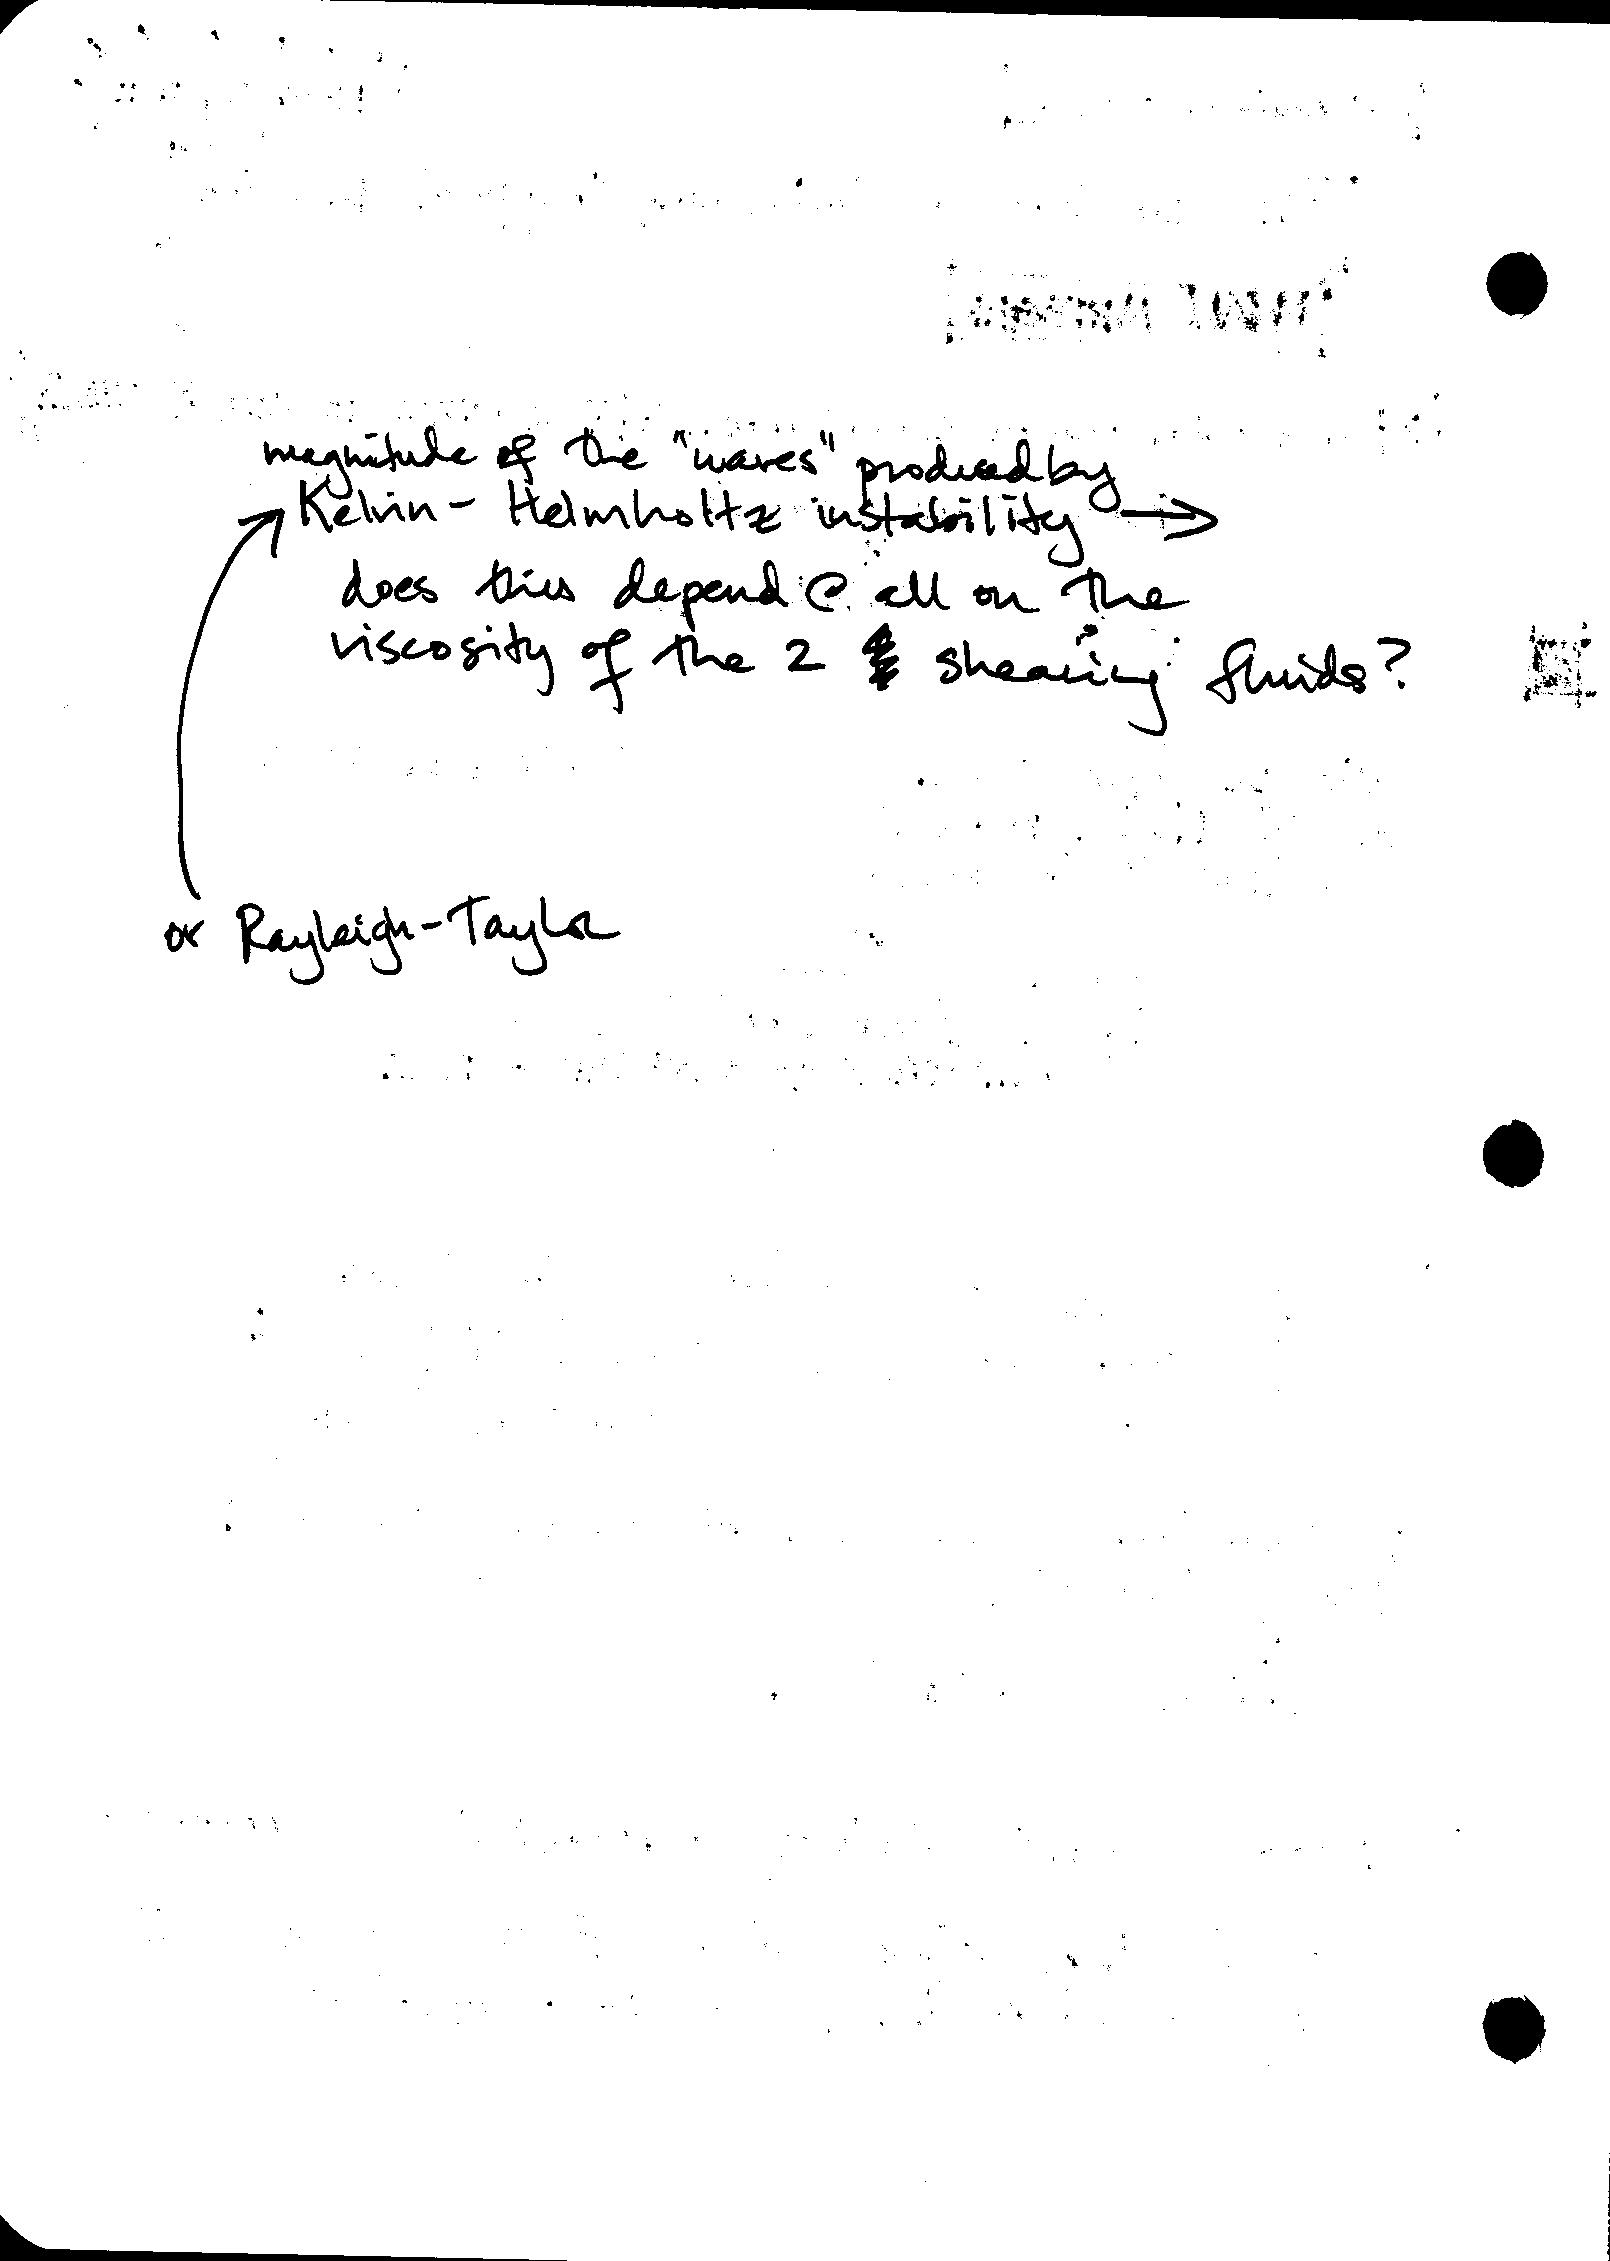 magnitude of the "waves" produced by
Kelvin - Helmholtz instability →
does this depend @ all on the
viscosity of the 2 shearing fluids?
or Rayleigh-Taylor